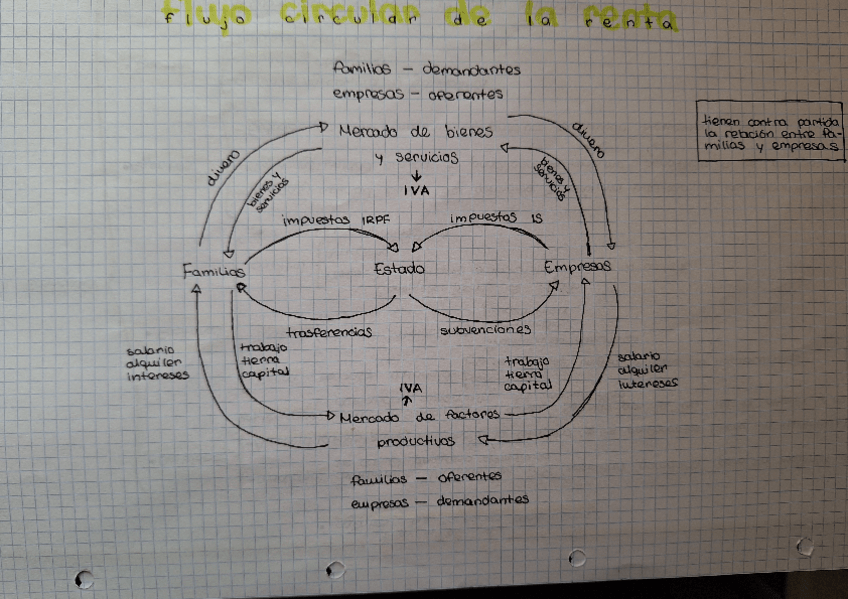 flujo circular de la renta
familias - demandantes
empresas - oferentes
tienen contra partida
la relación entre fa-
milias y empresas
Mercado de bienes
y servicios
IVA
dinero
bienes y
servicios
dinero
bienes y
servicios
impuestos IRPF
impuestos IS
Familias
Estado
Empresas
trasferencias
subvenciones
salario
alquiler
intereses
trabajo
tierra
capital
trabajo
tierra
capital
salario
alquiler
intereses
IVA
Mercado de factores
productivos
familias - oferentes
empresas - demandantes